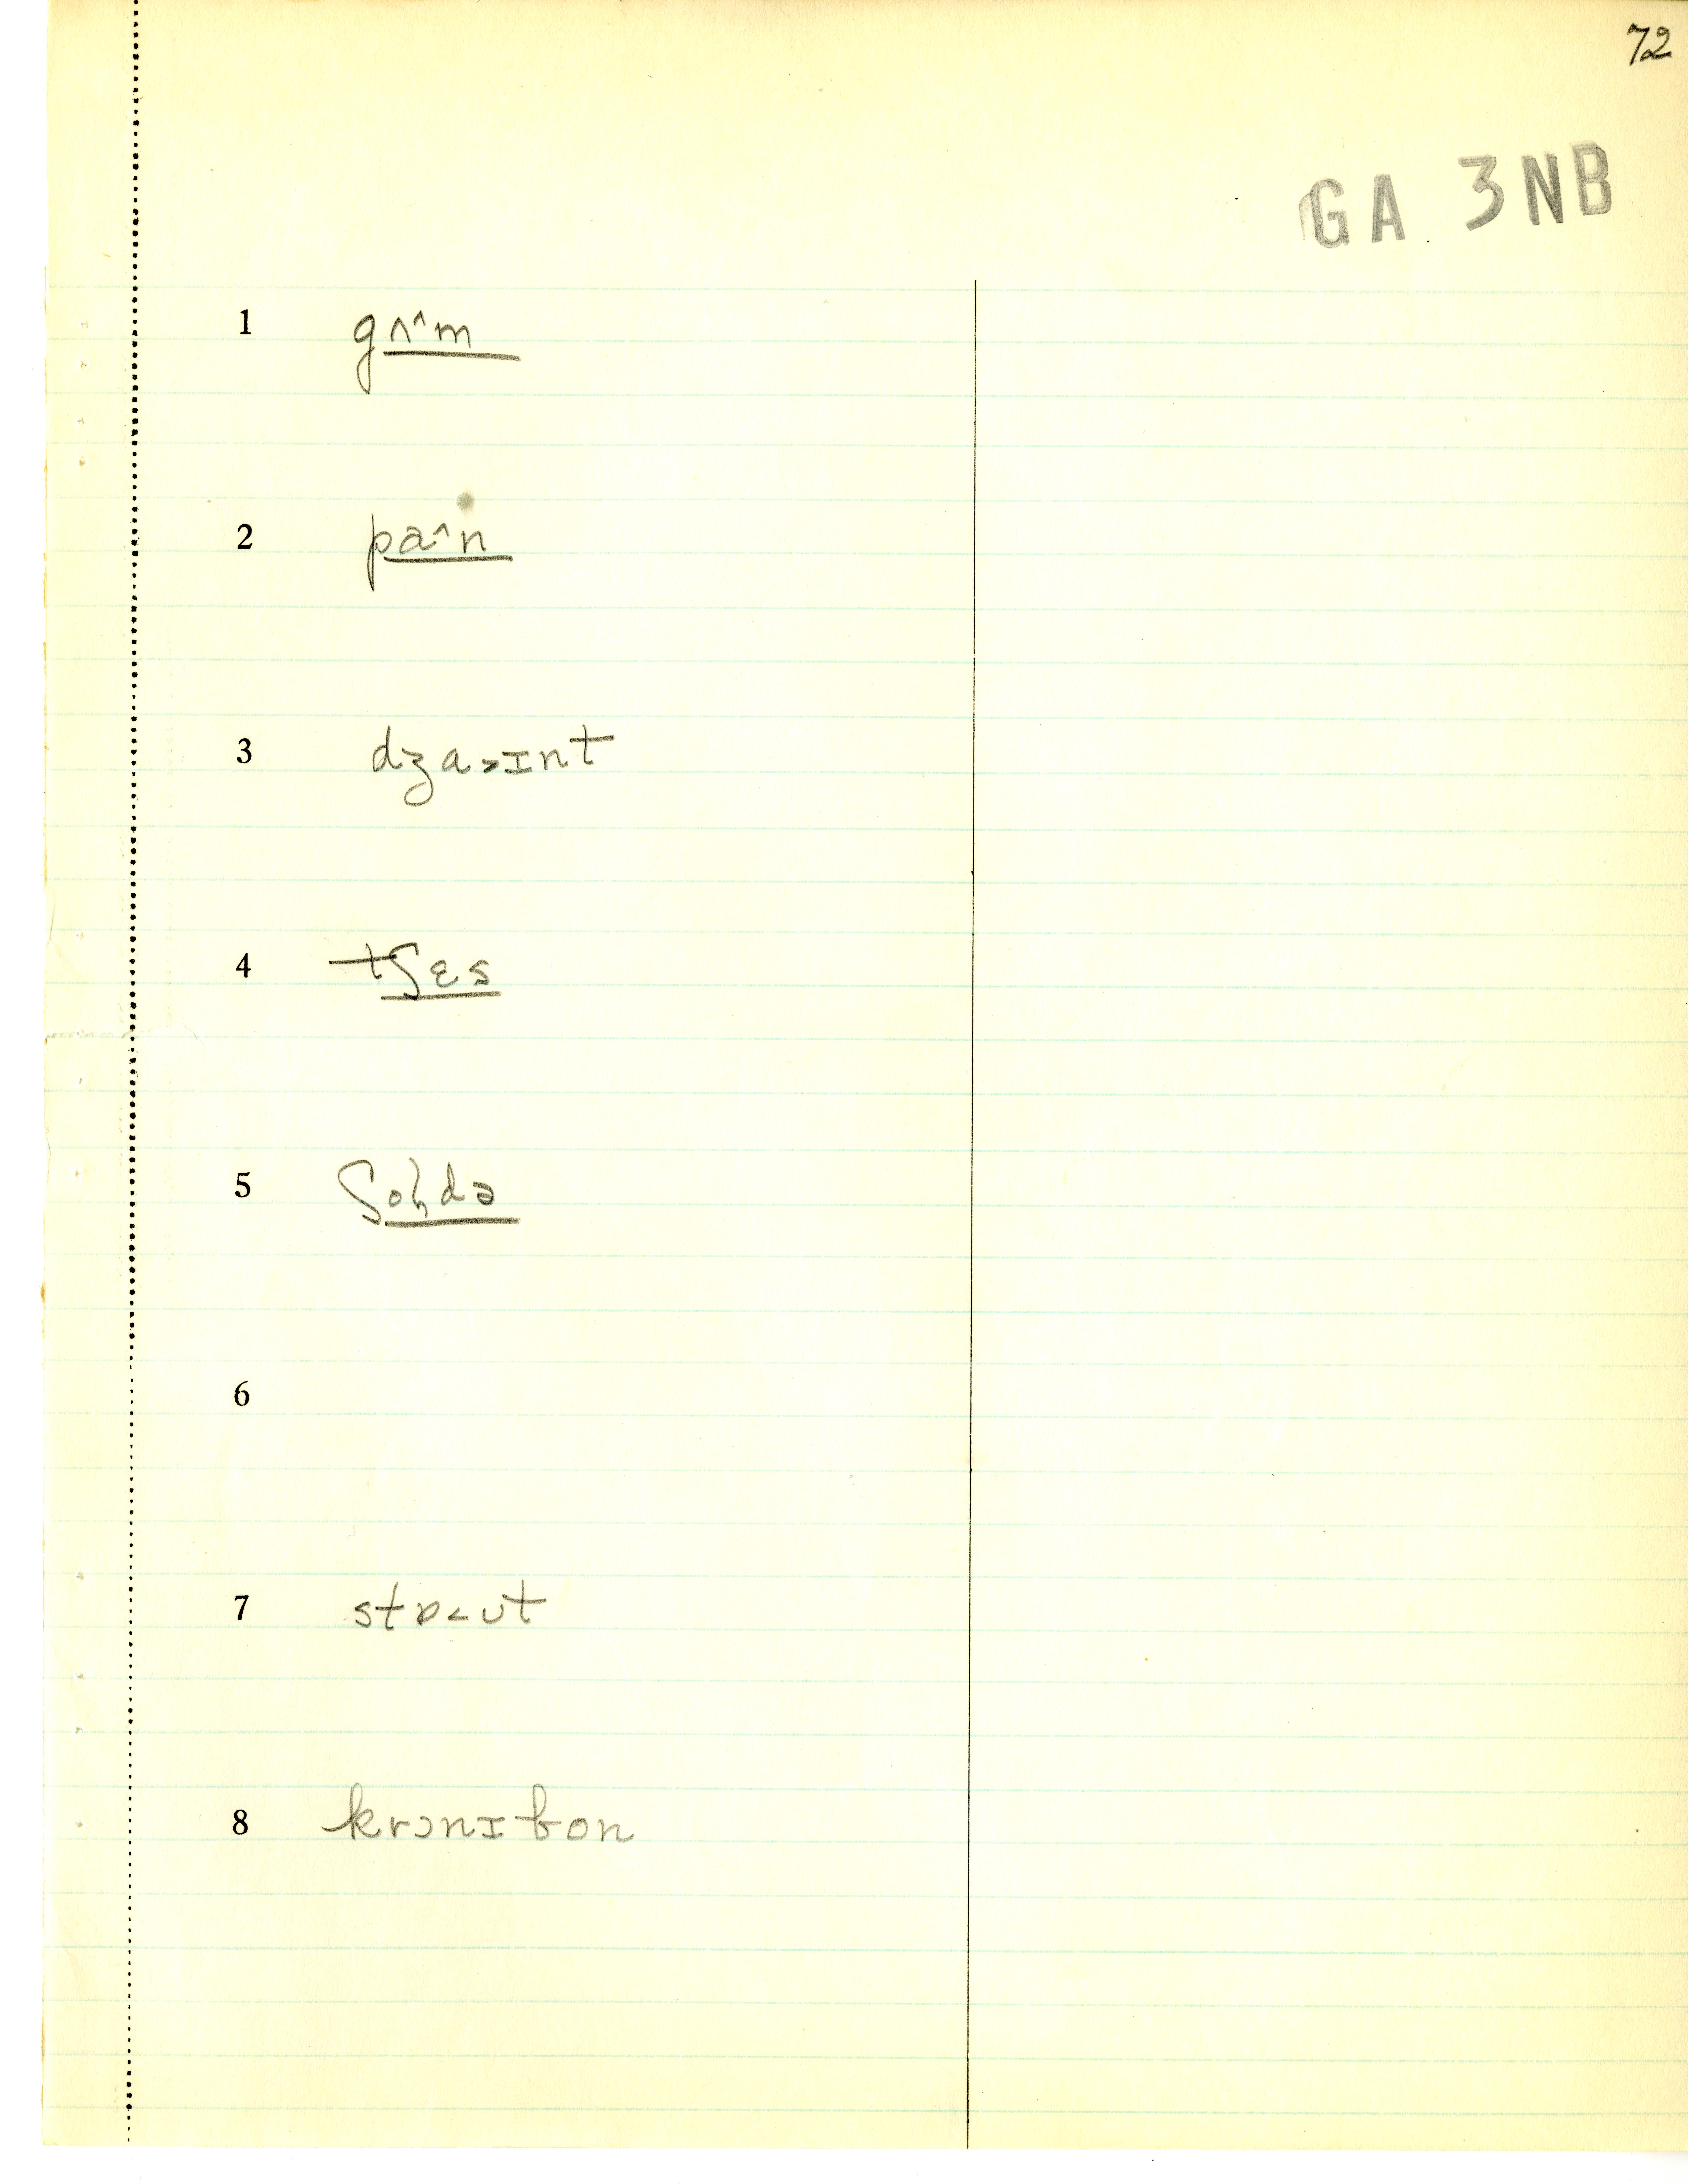 72
GA 3NB
1 gʌ˄m
2 pa˄n
3 dʒa˃ɪnt
4 tʃɛs
5 ʃoɫdə
6
7 stɒ˂ʊt
8 krɔnɪbon